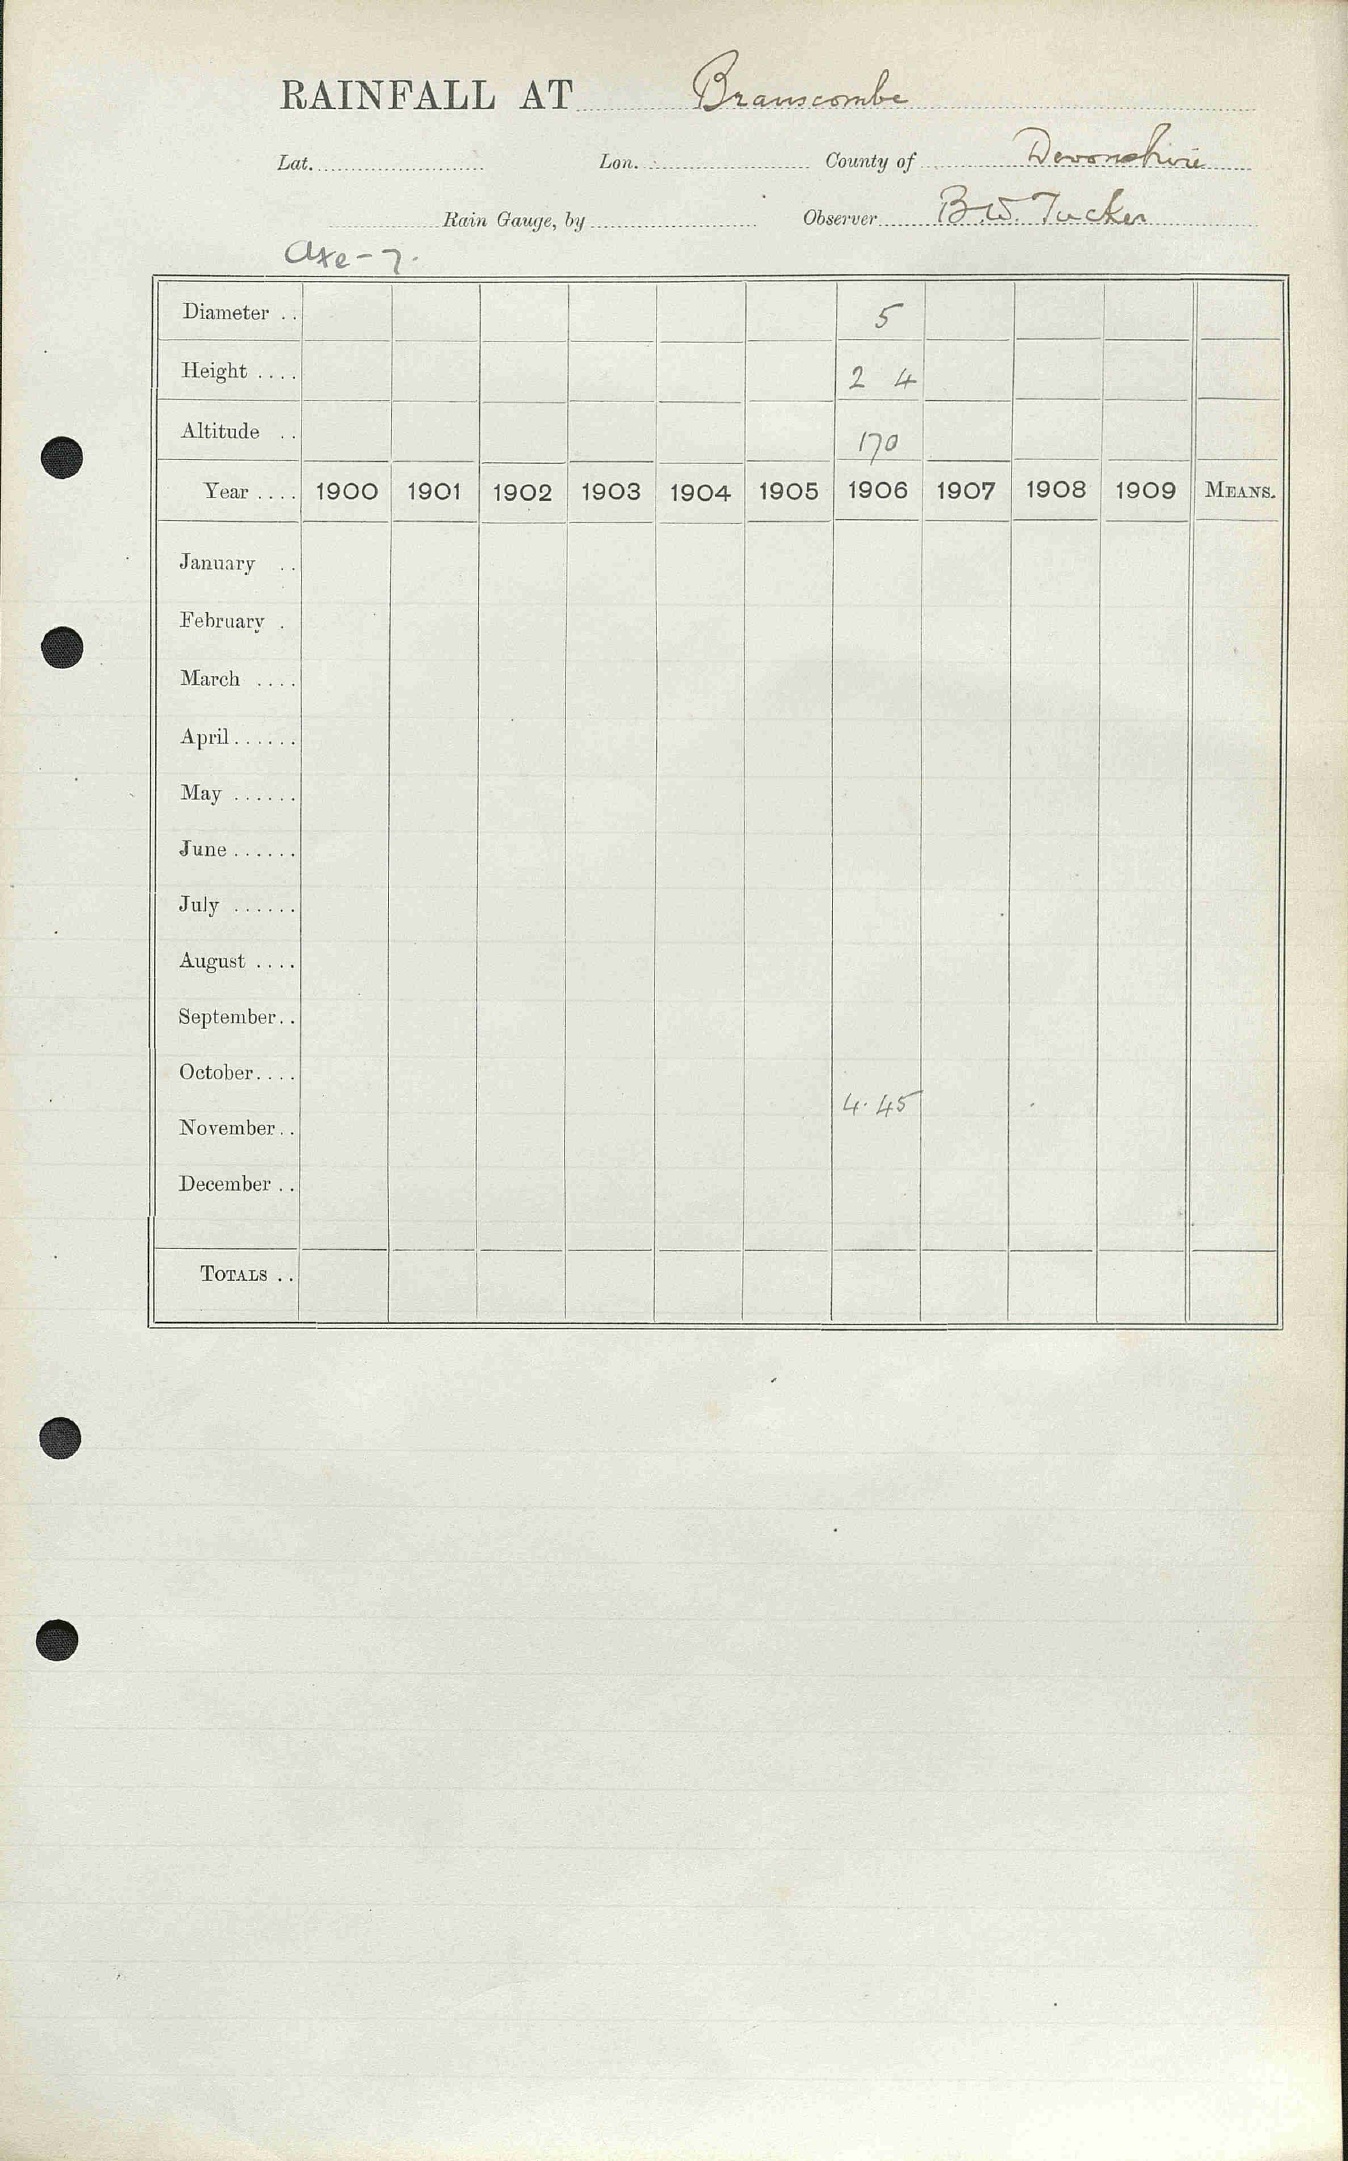 RAINFALL AT Branscombe
Lat. Lon. County of Devonshire
Rain Gauge, by Observer B.W. Tucker
Axe - 7.
Diameter .. 5
Height .... 2 4
Altitude .. 170
Year .... 1900 1901 1902 1903 1904 1905 1906 1907 1908 1909 MEANS.
January ..
February .
March ....
April ......
May ......
June ......
July ......
August ....
September..
October....
4.45
November..
December ..
TOTALS ..